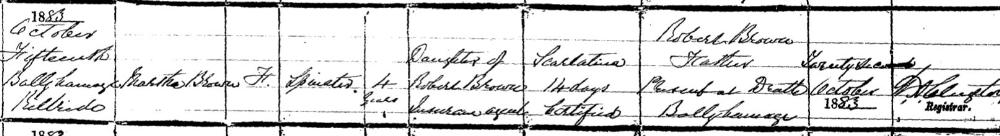 1883
October
Fifteenth
Ballyhamage
Kilbride
Martha Brown
F.
Spinster
4
Years
Daughter of
Robert Brown
Insurance agent
Scarlatina
14 days
Certified
Robert Brown
Father
Present at Death
Ballyhamage
Twenty second
October
1883
Registrar.
1883
1883